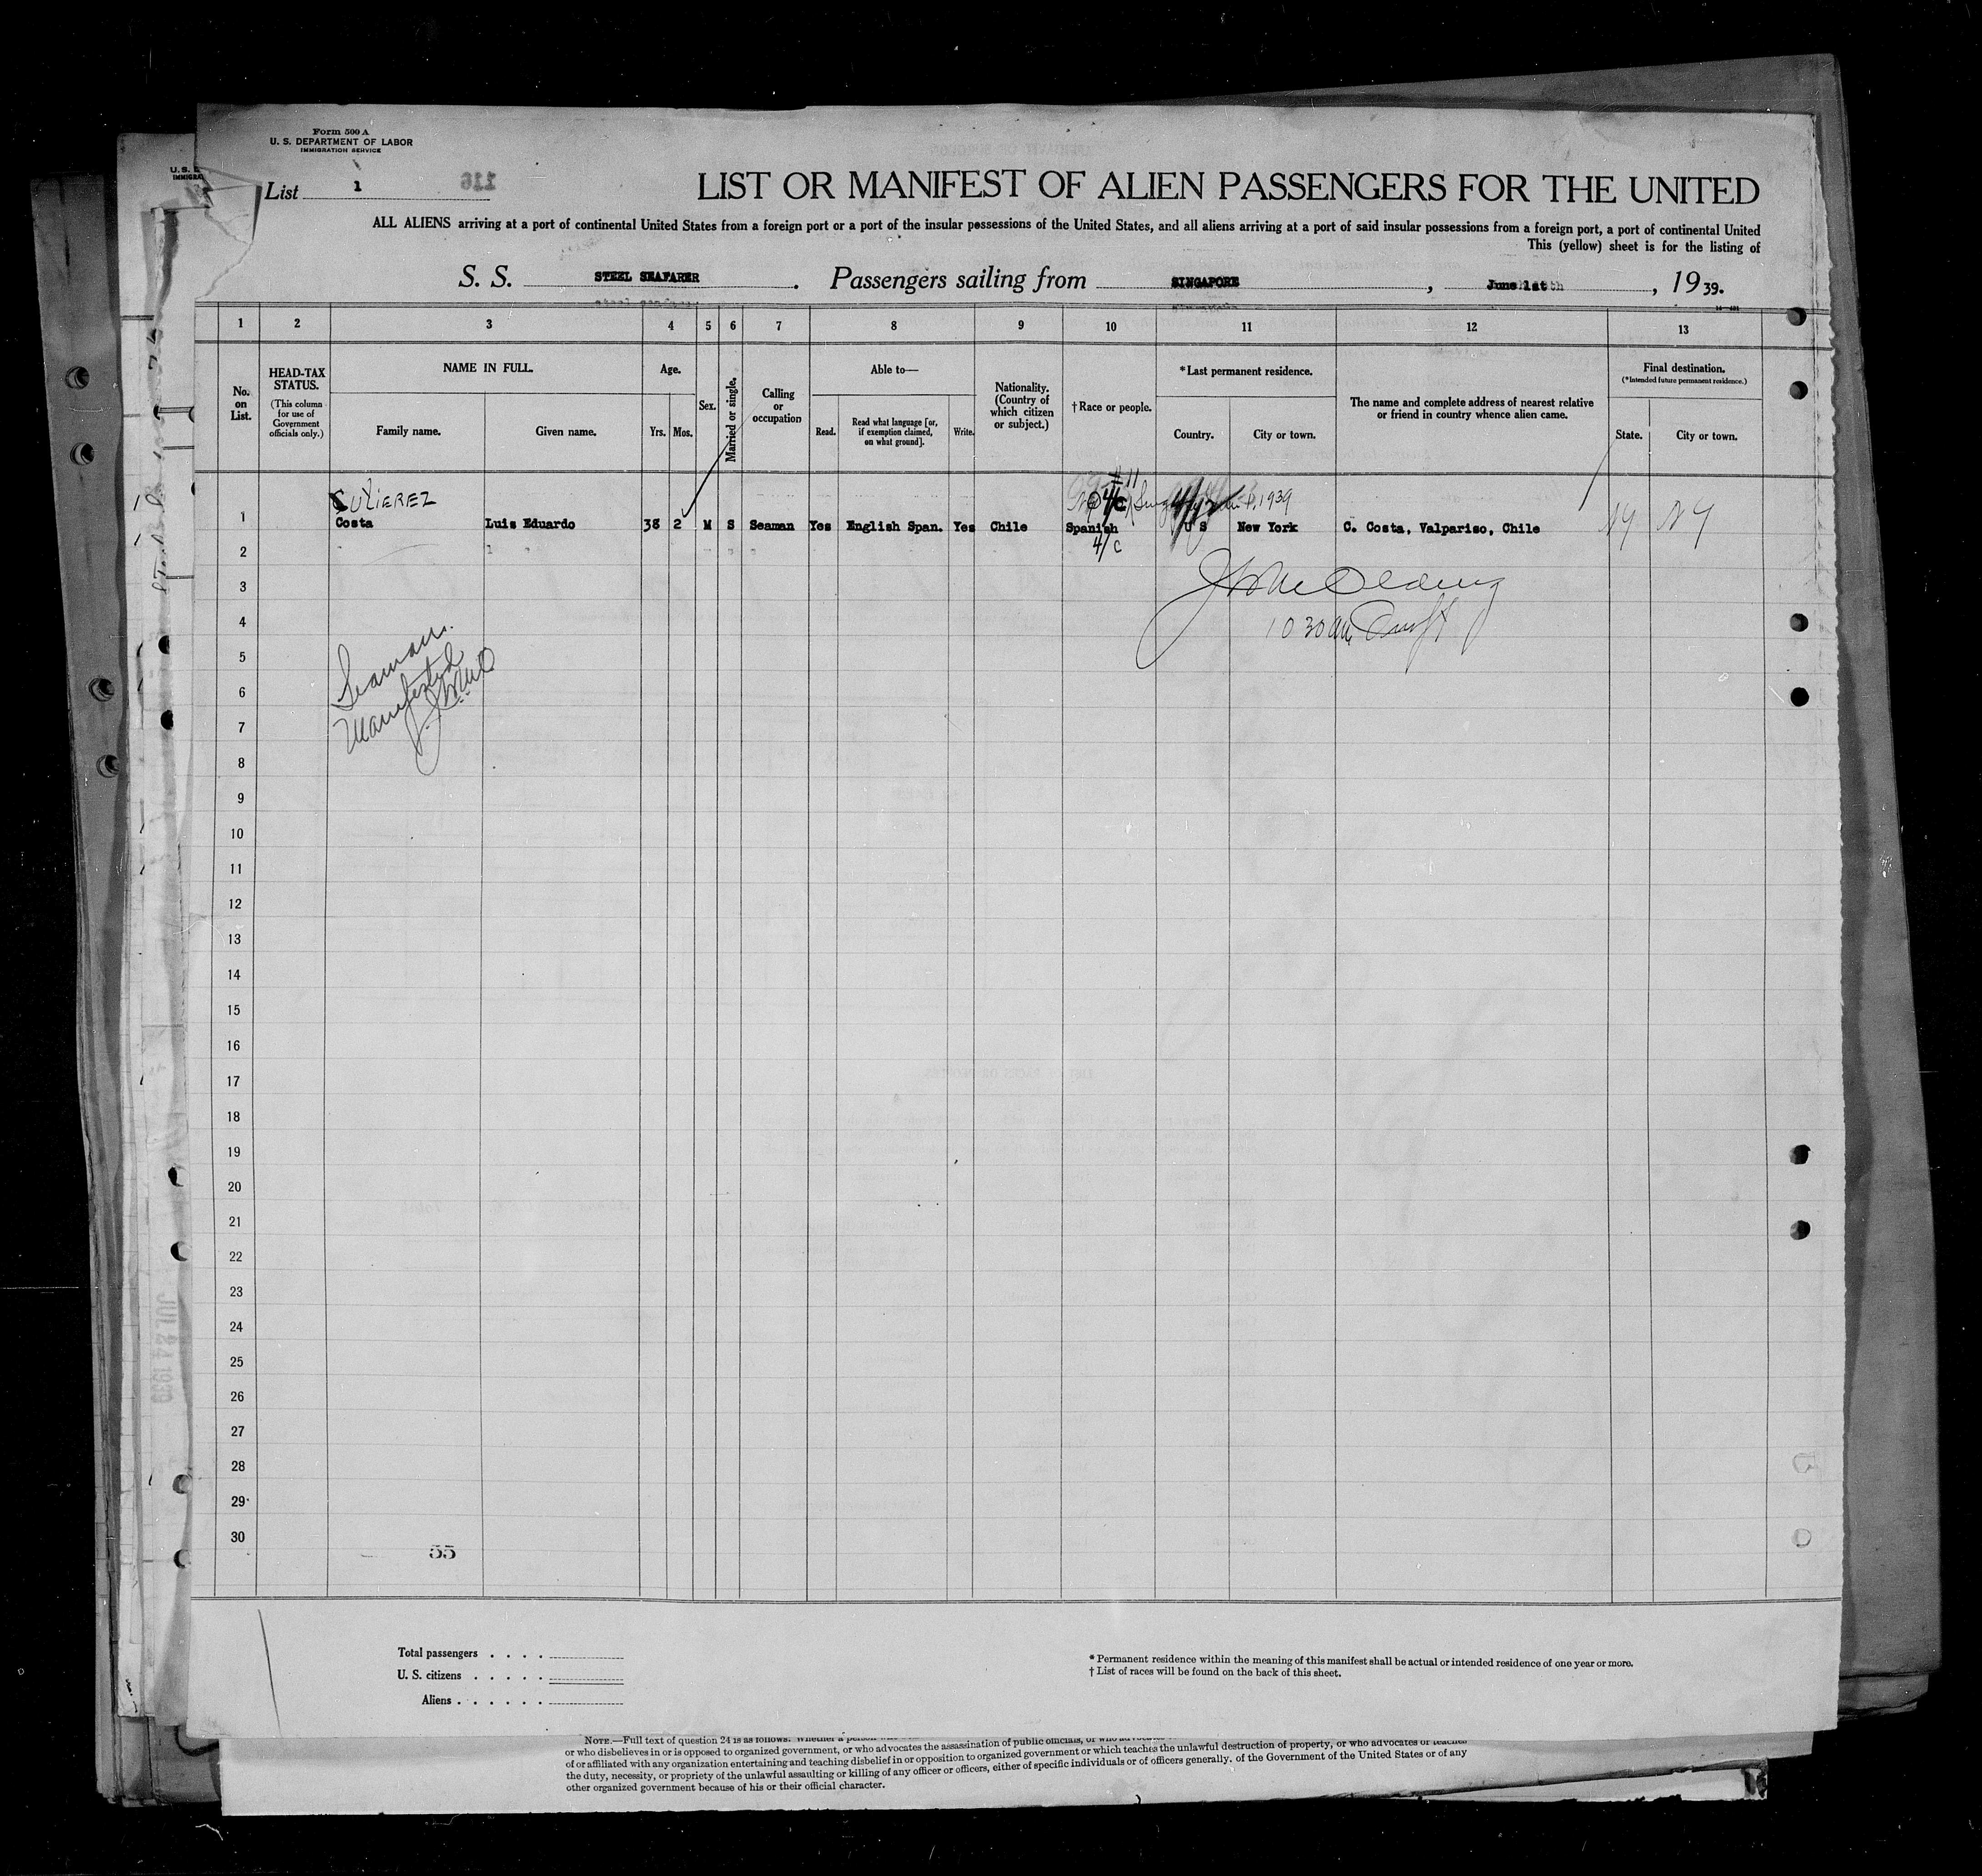 Form 500 A
U. S. DEPARTMENT OF LABOR
IMMIGRATION SERVICE
List 1
116
LIST OR MANIFEST OF ALIEN PASSENGERS FOR THE UNITED
ALL ALIENS arriving at a port of continental United States from a foreign port or a port of the insular possessions of the United States, and all aliens arriving at a port of said insular possessions from a foreign port, a port of continental United
This (yellow) sheet is for the listing of
S. S. STEEL SEAFARER . Passengers sailing from SINGAPORE , June 1st , 19 39.
1 2 3 4 5 6 7 8 9 10 11 12 13
No. on List.
HEAD-TAX STATUS.
(This column for use of Government officials only.)
NAME IN FULL.
Family name. Given name.
Age.
Yrs. Mos.
Sex.
Married or single.
Calling or occupation
Able to—
Read. Read what language [or, if exemption claimed, on what ground]. Write.
Nationality. (Country of which citizen or subject.)
†Race or people.
*Last permanent residence.
Country. City or town.
The name and complete address of nearest relative or friend in country whence alien came.
Final destination.
(*Intended future permanent residence.)
State. City or town.
GUTIEREZ
#11
4/C
1939
1 Costa Luis Eduardo 38 2 M S Seaman Yes English Span. Yes Chile Spanish U S New York C. Costa, Valpariso, Chile NY NY
4/C
2
3
4
10 30 am
5
Seaman
Manifested
6
7
8
9
10
11
12
13
14
15
16
17
18
19
20
21
22
23
24
25
26
27
28
29
30
55
JUL 24 1939
Total passengers . . . .
U. S. citizens . . . . .
Aliens . . . . . .
* Permanent residence within the meaning of this manifest shall be actual or intended residence of one year or more.
† List of races will be found on the back of this sheet.
NOTE.—Full text of question 24 is as follows: Whether a person
or who disbelieves in or is opposed to organized government, or who advocates the assassination of public officials, or who advocates
of or affiliated with any organization entertaining and teaching disbelief in or opposition to organized government or which teaches the unlawful destruction of property, or who advocates or teaches
the duty, necessity, or propriety of the unlawful assaulting or killing of any officer or officers, either of specific individuals or of officers generally, of the Government of the United States or of any
other organized government because of his or their official character.